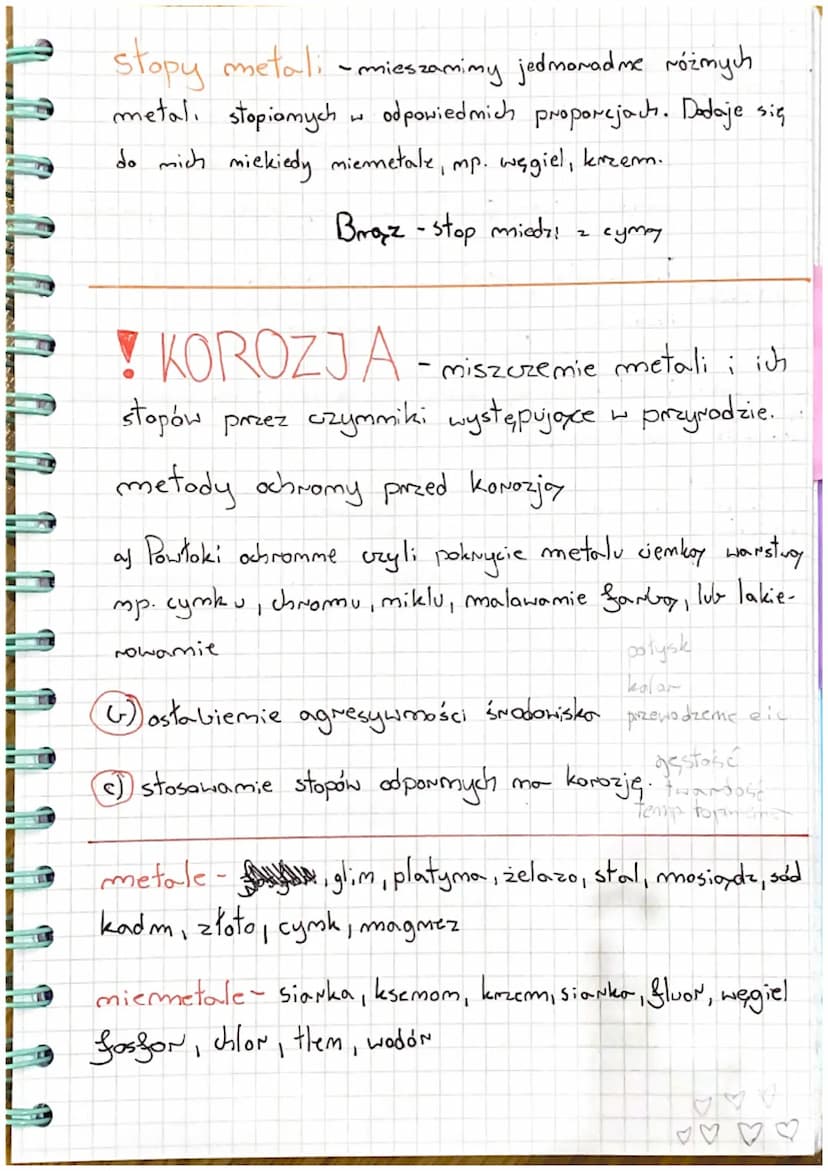 stopy metali - mieszaniny jednorodne różnych
metali stopionych w odpowiednich proporcjach. Dodaje się
do nich niekiedy niemetale, np. węgiel, krzem.
Brąz - stop miedzi z cyną
! KOROZJA - niszczenie metali i ich
stopów przez czynniki występujące w przyrodzie.
metody ochrony przed korozją
a) Powłoki ochronne czyli pokrycie metalu cienką warstwą
np. cynku, chromu, niklu, malawanie farbą, lub lakie-
rowanie
połysk
kolor
b) osłabienie agresywności środowiska przewodzenie
gęstość
c) stosowanie stopów odpornych na korozję. twardość
temp
metale - , glin, platyna, żelazo, stal, mosiądz, sód
kadm, złoto, cynk, magnez
niemetale - siarka, ksenon, krzem, siarka, fluor, węgiel
fosfor, chlor, tlen, wodór